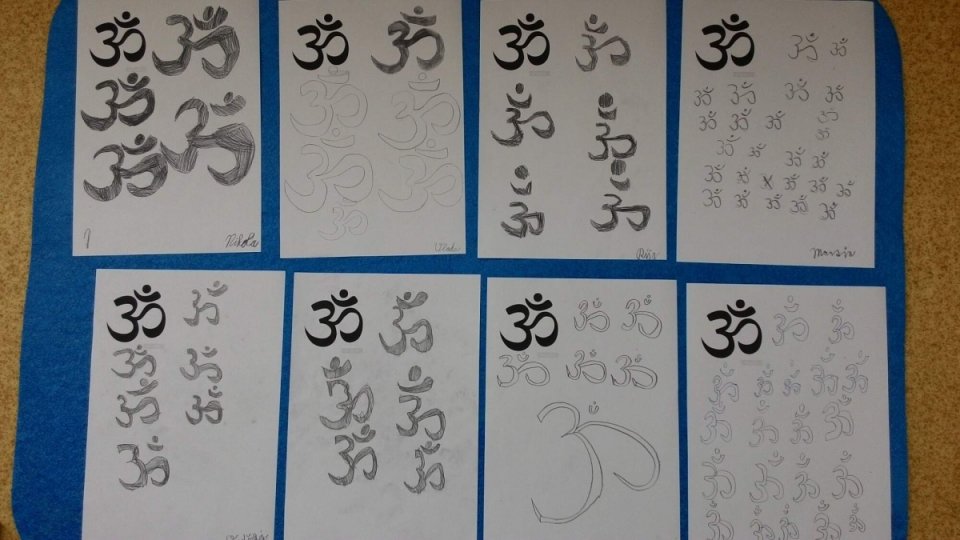 ॐ ॐ
ॐ ॐ
ॐ
Nikola
ॐ ॐ
ॐ ॐ
ॐ ॐ
ॐ
ॐ ॐ
ॐ ॐ
ॐ ॐ
ॐ ॐ ॐ
ॐ ॐ ॐ ॐ
ॐ ॐ ॐ ॐ
ॐ
ॐ ॐ ॐ ॐ
ॐ ॐ ॐ ॐ ॐ
ॐ ॐ ॐ ॐ ॐ
ॐ ॐ
ॐ ॐ
ॐ ॐ
ॐ
ॐ ॐ
ॐ ॐ
ॐ ॐ
ॐ ॐ ॐ
ॐ ॐ ॐ
ॐ
ॐ ॐ ॐ
ॐ ॐ ॐ ॐ ॐ
ॐ ॐ ॐ ॐ
ॐ ॐ ॐ
ॐ ॐ ॐ ॐ